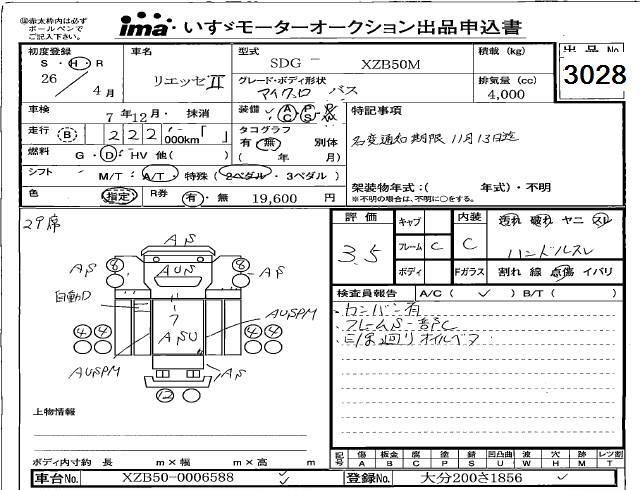 ※赤太枠内は必ず
ボールペンで
ご記入下さい。
ima いすゞモーターオークション出品申込書
初度登録 車名 型式 積載 (kg) 出品No
S・H・R リエッセII SDG - XZB50M
26/4月 グレード・ボディ形状 排気量 (cc) 3028
マイクロバス 4,000
車検 7年12月・抹消 装備 AC PS 特記事項
走行 B 222,000km「 」 タコグラフ
有・無 別体 名変通知期限 11月13日迄
燃料 G・D・HV 他( ) ( 年 月)
シフト M/T・A/T・特殊 (2ペダル・3ペダル) 架装物年式:( 年式)・不明
色 指定 R券 有・無 19,600 円 ※不明の場合は、不明に○をする。
29席
評価 キャブ 内装 汚れ 破れ ヤニ スレ
3.5 フレーム C C ハンドルスレ
ボディ Fガラス 割れ 線 点傷 イバリ
検査員報告 A/C( ✓ ) B/T( )
・カンバン有
・フレームS一部C
AS
AS 8 AUS 8 AS
自動D
7
ASU AUSPM
4 4 4 4
AUSPM AS
12
上物情報
ボディ内寸約 長 m×幅 m×高 m
記号 傷 板金 腐 塗 錆 凹凸曲 波 穴 跡 レツ割
A B C P S U W H M T
車台No. XZB50-0006588 登録No. 大分200さ1856